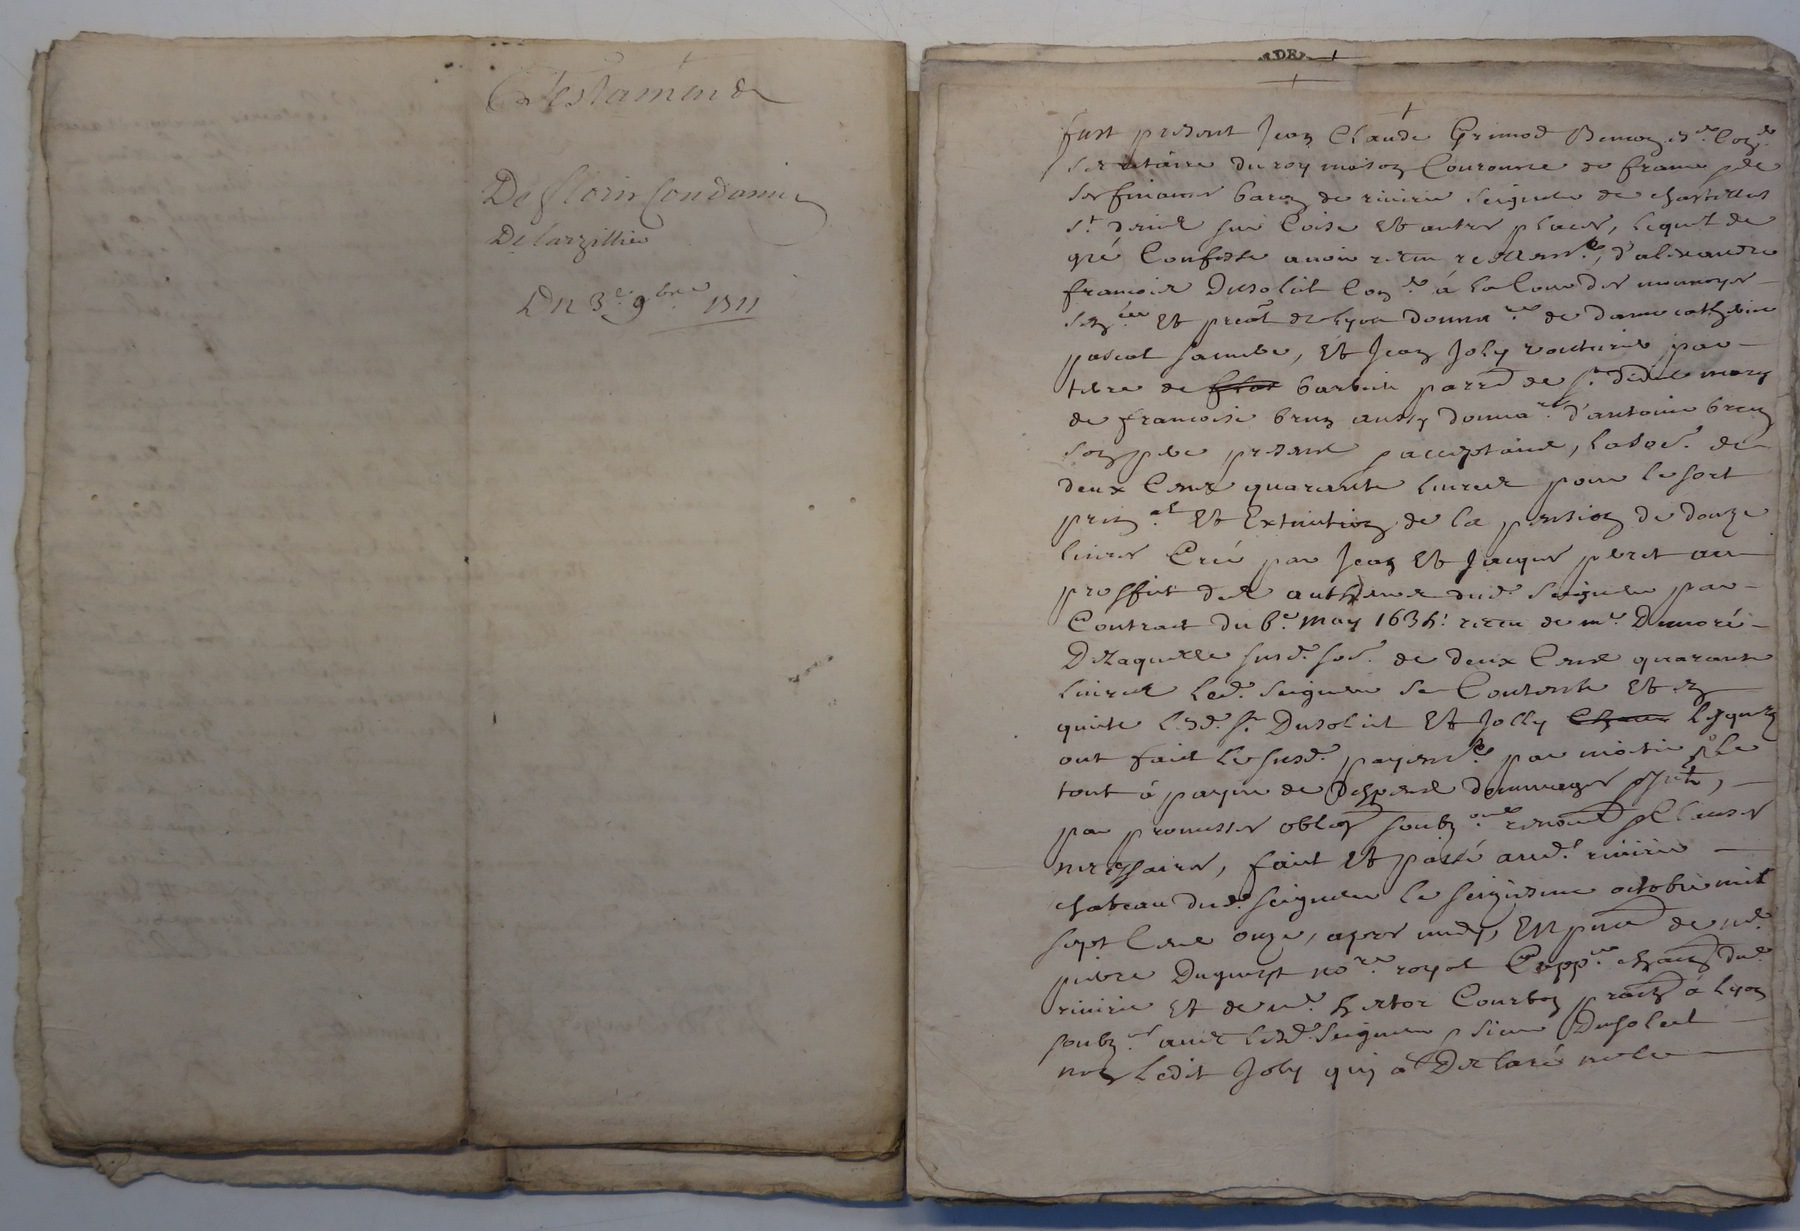 Testament
De florin Condamin
De larzillier
Du 3e. 9bre 1711
fust present Jean Claude Grimod Beneon
secretaire du roy maison Couronne de france
ses finances baron de riviere seigneur de chastelus
st denis sur Coise et autres places, lequel de
gré Confesse avoir receu d'alexandre
francois Dusoleil à la Cour des monnoyes
et de lyon de dame catherine
pascal famme, et Jean Joly voiturier par
terre de barbier de st. mary
de francoise brun aussy donnare. d'antoine brun
son pere present acceptans, la so๊e. de
deux Cens quarante livres pour le sort
prinal. et Extinction de la pension de douze
livres Créé par Jean et Jacques peret au
proffit des autheurs dud. seigneur par
Contract du 6e. may 1635. receu de me. Dumoré
De laquelle susd. so๊e. de deux Cens quarante
livres led. seigneur se Contente et en
quitte lesd. sr. Dusoleil et Jolly lesquels
ont fait le susd. payemt. par moitié le
tout à payne de despens dommages
par promesses soubzons renon clauses
necessaires, fait et passé aud. riviere
chateau dud. seigneur le seizieme octobre mil
sept Cens onze, apres midy, En de me.
pierre Duguest nore. royal dud.
riviere et de me. hector Courbon à lyon
soubz. avec led. seigneur sieur Dusoleil
non ledit Joly qui a Declaré ne le